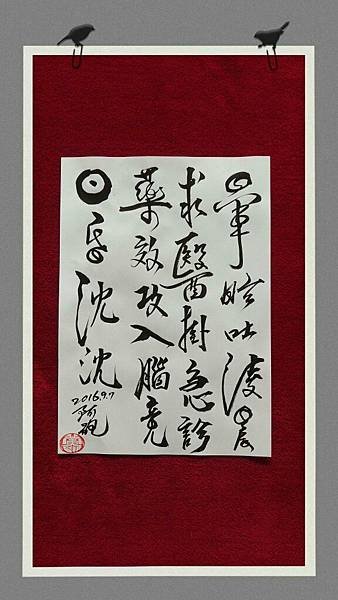 暈眩吐凌晨
求醫掛急診
藥效攻入腦竟
日昏沈沈
2016.9.7